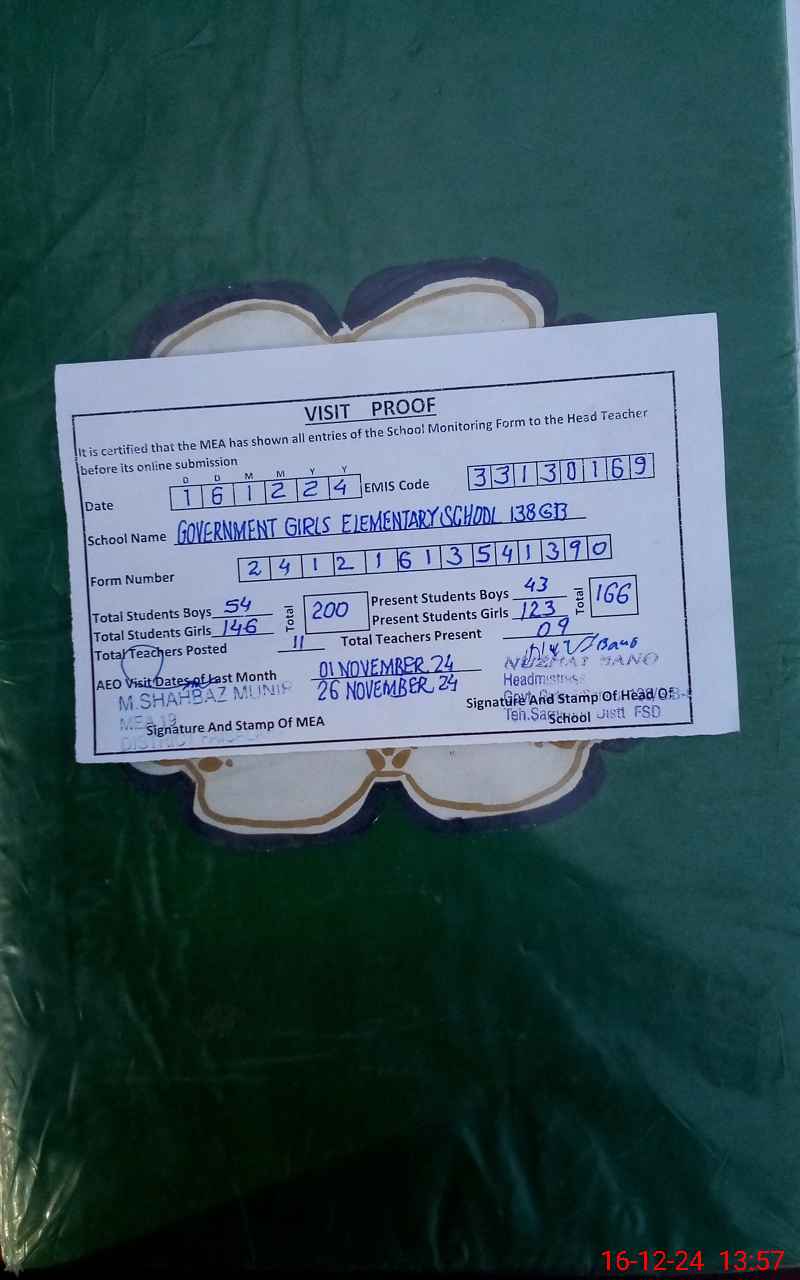 VISIT PROOF
It is certified that the MEA has shown all entries of the School Monitoring Form to the Head Teacher
before its online submission
D D M M Y Y
Date 1 6 1 2 2 4 EMIS Code 3 3 1 3 0 1 6 9
School Name GOVERNMENT GIRLS ELEMENTARY SCHOOL 138GB
Form Number 2 4 1 2 1 6 1 3 5 4 1 3 9 0
Total Students Boys 54 Total 200 Present Students Boys 43 Total 166
Total Students Girls 146 Present Students Girls 123
Total Teachers Posted 11 Total Teachers Present 09
AEO Visit Dates of Last Month 01 NOVEMBER 24
26 NOVEMBER 24
M.SHAHBAZ MUNIR
MEA 19
DISTRICT
Signature And Stamp Of MEA
Bano
NUZHAT BANO
Headmistress
Signature And Stamp Of Head Of
School
Distt FSD
16-12-24 13:57